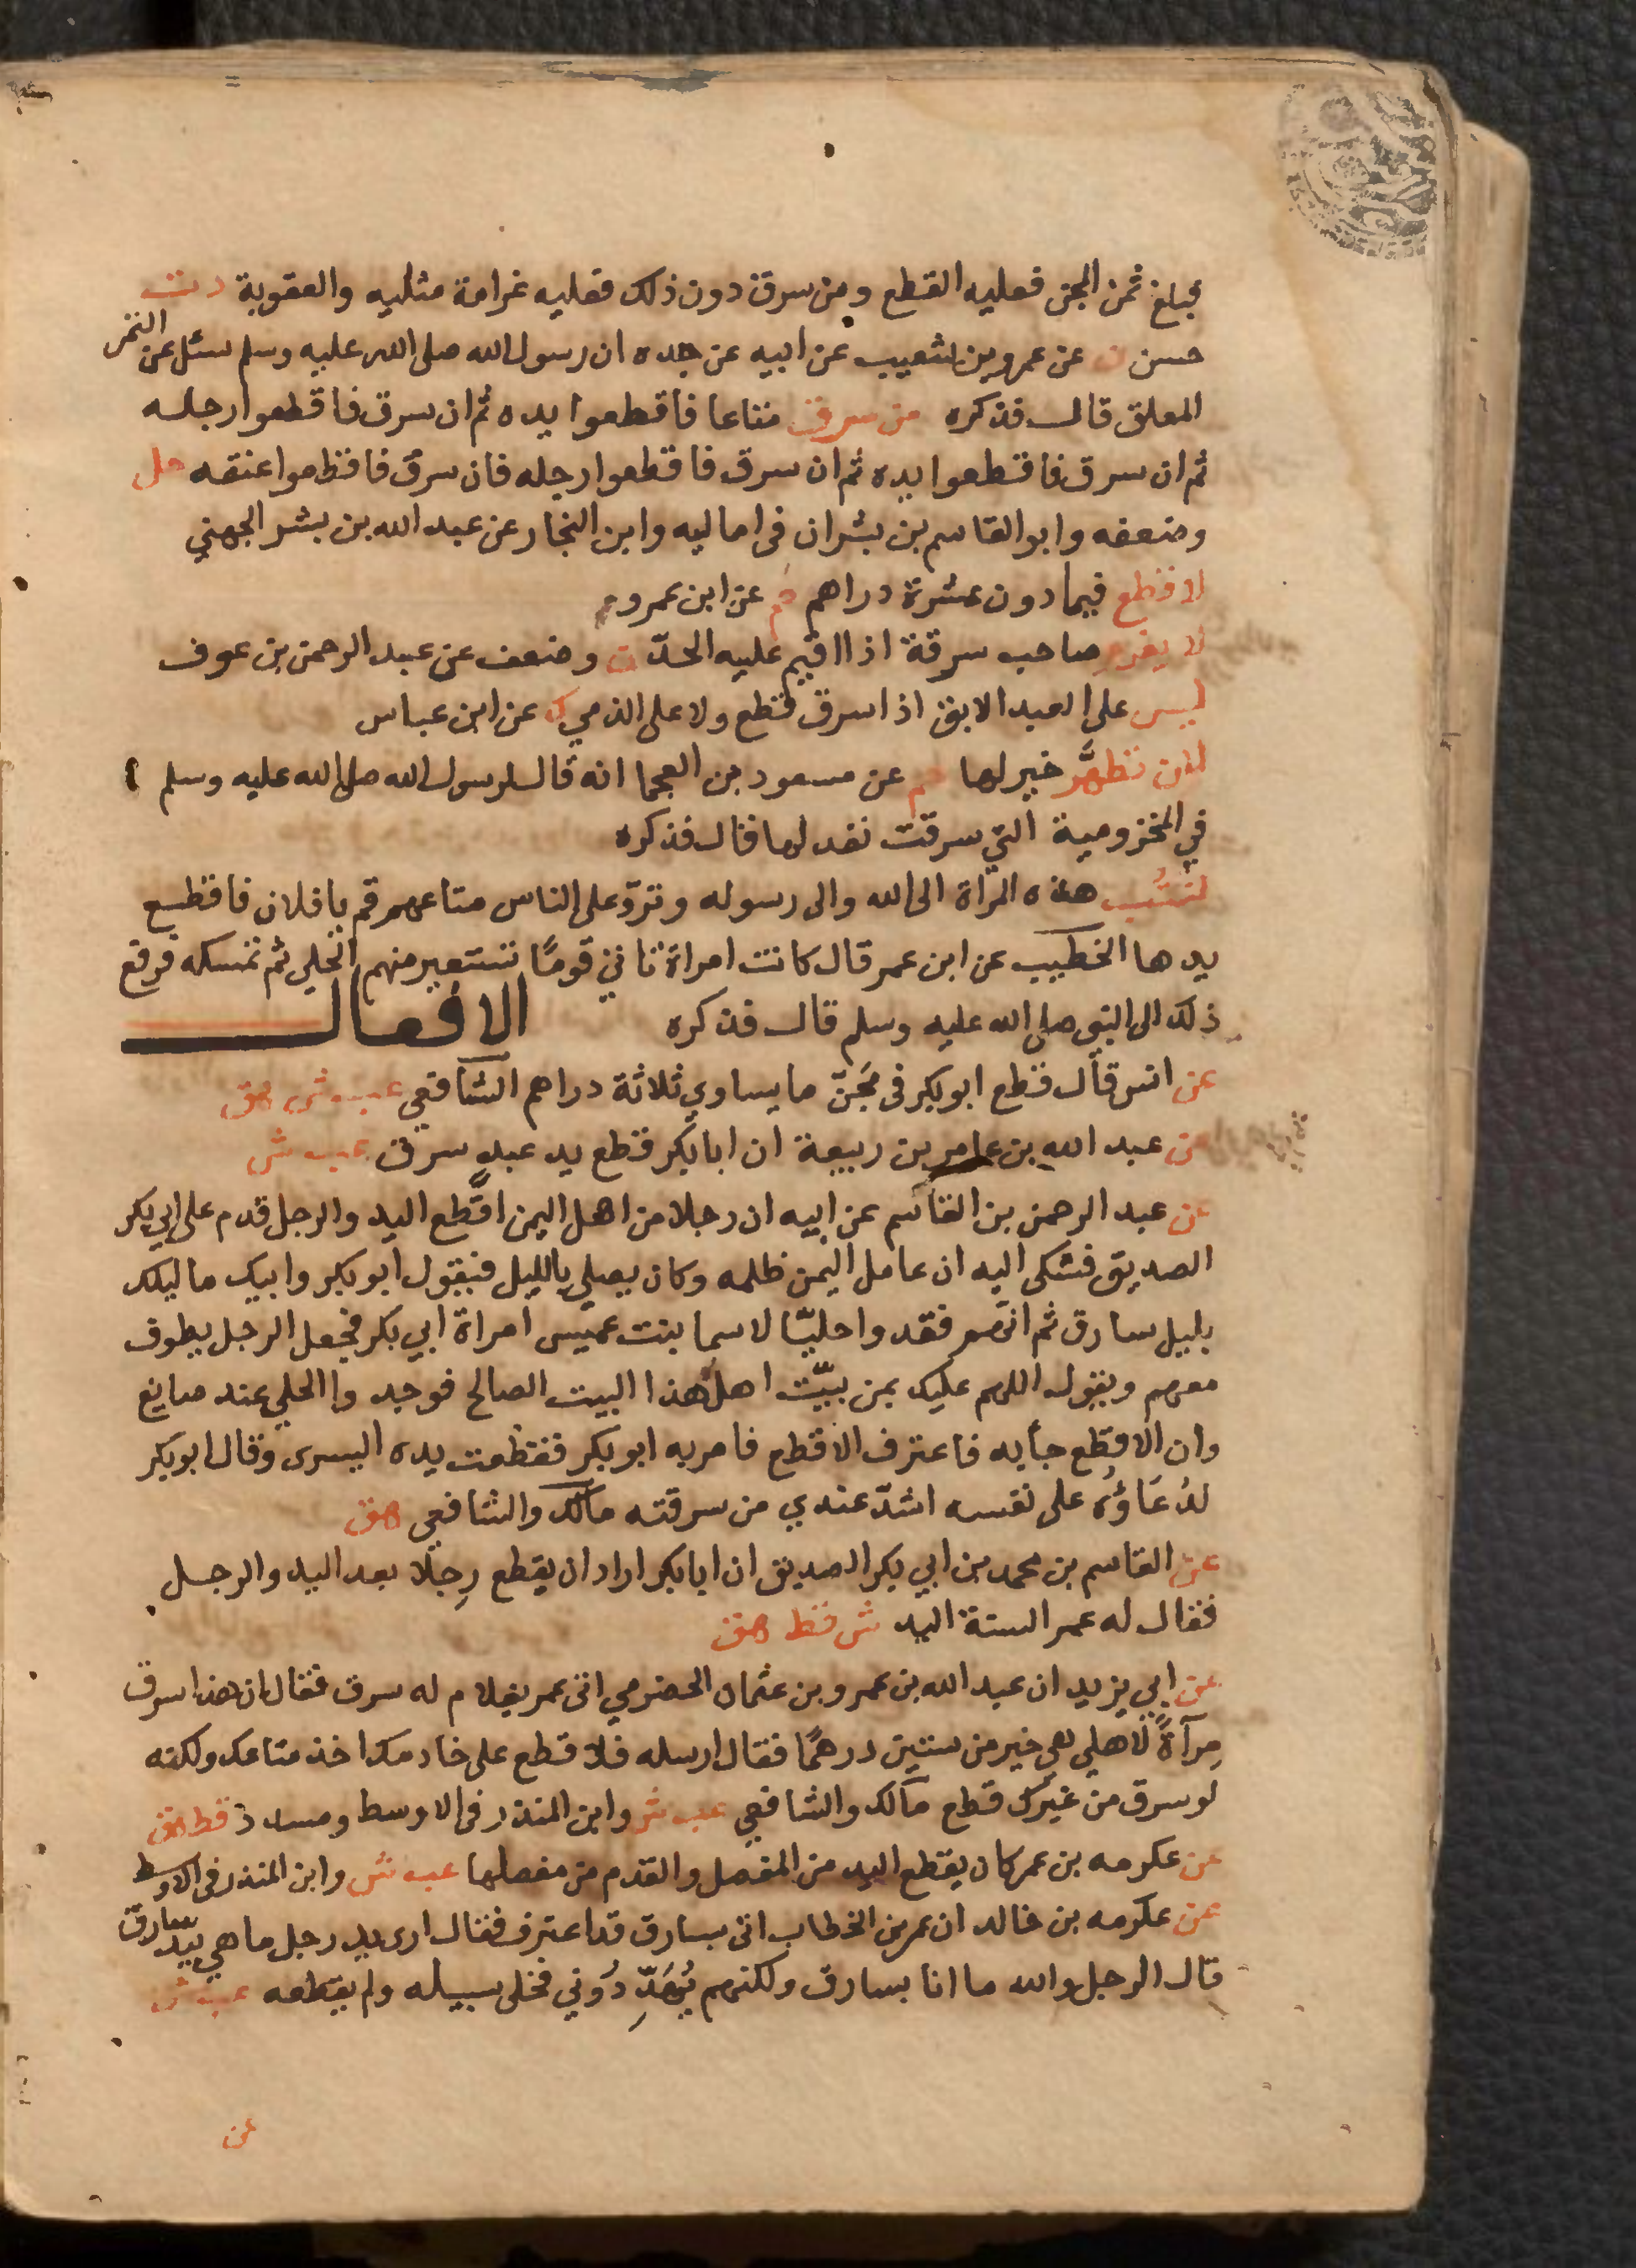 يجبلغ ثمن المجن فعليه القطع ومن سرق دون ذلك فعليه غرامة مثليه والعقوبة د ت
حسن ن عن عمرو بن شعيب عن ابيه عن جده ان رسول الله صلى الله عليه وسلم سئل عن الثمر
المعلق قال فذكره من سرق متاعا فاقطعوا يده ثم ان سرق فاقطعوا رجله
ثم ان سرق فاقطعوا يده ثم ان سرق فاقطعوا رجله فان سرق فاقطعوا عنقه حل
وضعفه وابو القاسم بن بشران في اماليه وابن النجار عن عبد الله بن بشر الجهني
لا قطع فيما دون عشرة دراهم حم عن ابن عمرو
لا يغرم صاحب سرقة اذا اقيم عليه الحدّ ن وضعف عن عبد الرحمن بن عوف
ليس على العبد الابق اذا سرق قطع ولا على الذمي ك عن ابن عباس
لان تطهَّر خير لها حم عن مسعود بن العجما انه قال لرسول الله صلى الله عليه وسلم
في المخزومية التي سرقت نفد لها فقال فذكره
لتتُب هذه المرأة الى الله والى رسوله وتردّ على الناس متاعهم قم يا فلان فاقطع
يدها الخطيب عن ابن عمر قال كانت امراة تاتي قومًا تستعير منهم الحلي ثم تمسكه فرفع
ذلك الى النبي صلى الله عليه وسلم قال فذكره الافعال
عن انس قال قطع ابو بكر في مجَنّ ما يساوي ثلاثة دراهم الشافعي عب ش هق
عن عبد الله بن عامر بن ربيعة ان ابا بكر قطع يد عبدٍ سرق عب ش
عن عبد الرحمن بن القاسم عن ابيه ان رجلا من اهل اليمن اقطع اليد والرجل قدم على ابي بكر
الصديق فشكى اليه ان عامل اليمن ظلمه وكان يصلي بالليل فيقول ابو بكر وابيك ما ليلك
بليل سارق ثم انهم فقدوا حليّا لاسما بنت عميس امراة ابي بكر فجعل الرجل يطوف
معهم ويقول اللهم عليك بمن بيّت اهل هذا البيت الصالح فوجدوا الحلي عند صايغ
وان الاقطع جأ به فاعترف الاقطع فامر به ابو بكر فقطعت يده اليسرى وقال ابو بكر
لدُعَاؤُه على نفسه اشدّ عندي من سرقته مالك والشافعي هق
عن القاسم بن محمد بن ابي بكر الصديق ان ابا بكر اراد ان يقطع رِجلا بعد اليد والرجل
فقال له عمر السنة اليد ش قط هق
عن ابي يزيد ان عبد الله بن عمرو بن عثمان الحضرمي اتى عمر بغلام له سرق فقال ان هذا سرق
مِرآةً لاهلي هي خير من ستين درهمًا فقال ارسله فلا قطع على خادمك اخذ متاعك ولكنه
لو سرق من غيرك قطع مالك والشافعي عب ش وابن المنذر في الاوسط ومسدد قط هق
عن عكرمه بن عمر كان يقطع اليد من المفصل والقدم من مفصلها عب ش وابن المنذر في الاوسط
عن عكرمه بن خالد ان عمر بن الخطاب اتى بسارق قد اعترف فقال ارى يد رجل ما هي بيد سارق
قال الرجل والله ما انا بسارق ولكنهم يُهَدِّدُوني فخلى سبيله ولم يقطعه عب ش
عن